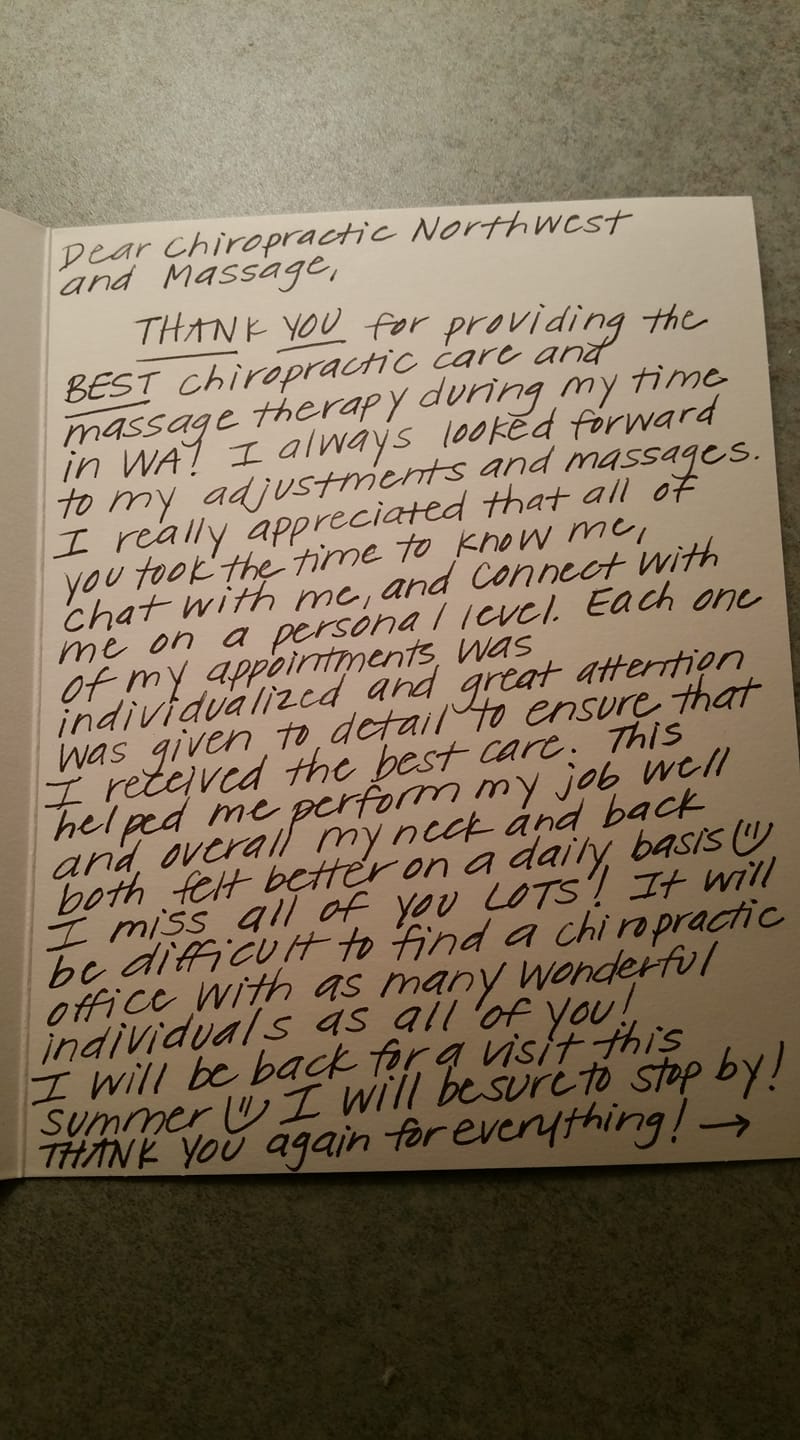 Dear Chiropractic Northwest
and Massage,
THANK YOU for providing the
BEST chiropractic care and
massage therapy during my time
in WA! I always looked forward
to my adjustments and massages.
I really appreciated that all of
you took the time to know me,
chat with me, and connect with
me on a personal level. Each one
of my appointments was
individualized and great attention
was given to detail to ensure that
I received the best care. This
helped me perform my job well
and overall my neck and back
both felt better on a daily basis ☺
I miss all of you LOTS! It will
be difficult to find a chiropractic
office with as many wonderful
individuals as all of you!
I will be back for a visit this
summer ☺ I will be sure to stop by!
THANK YOU again for everything! →